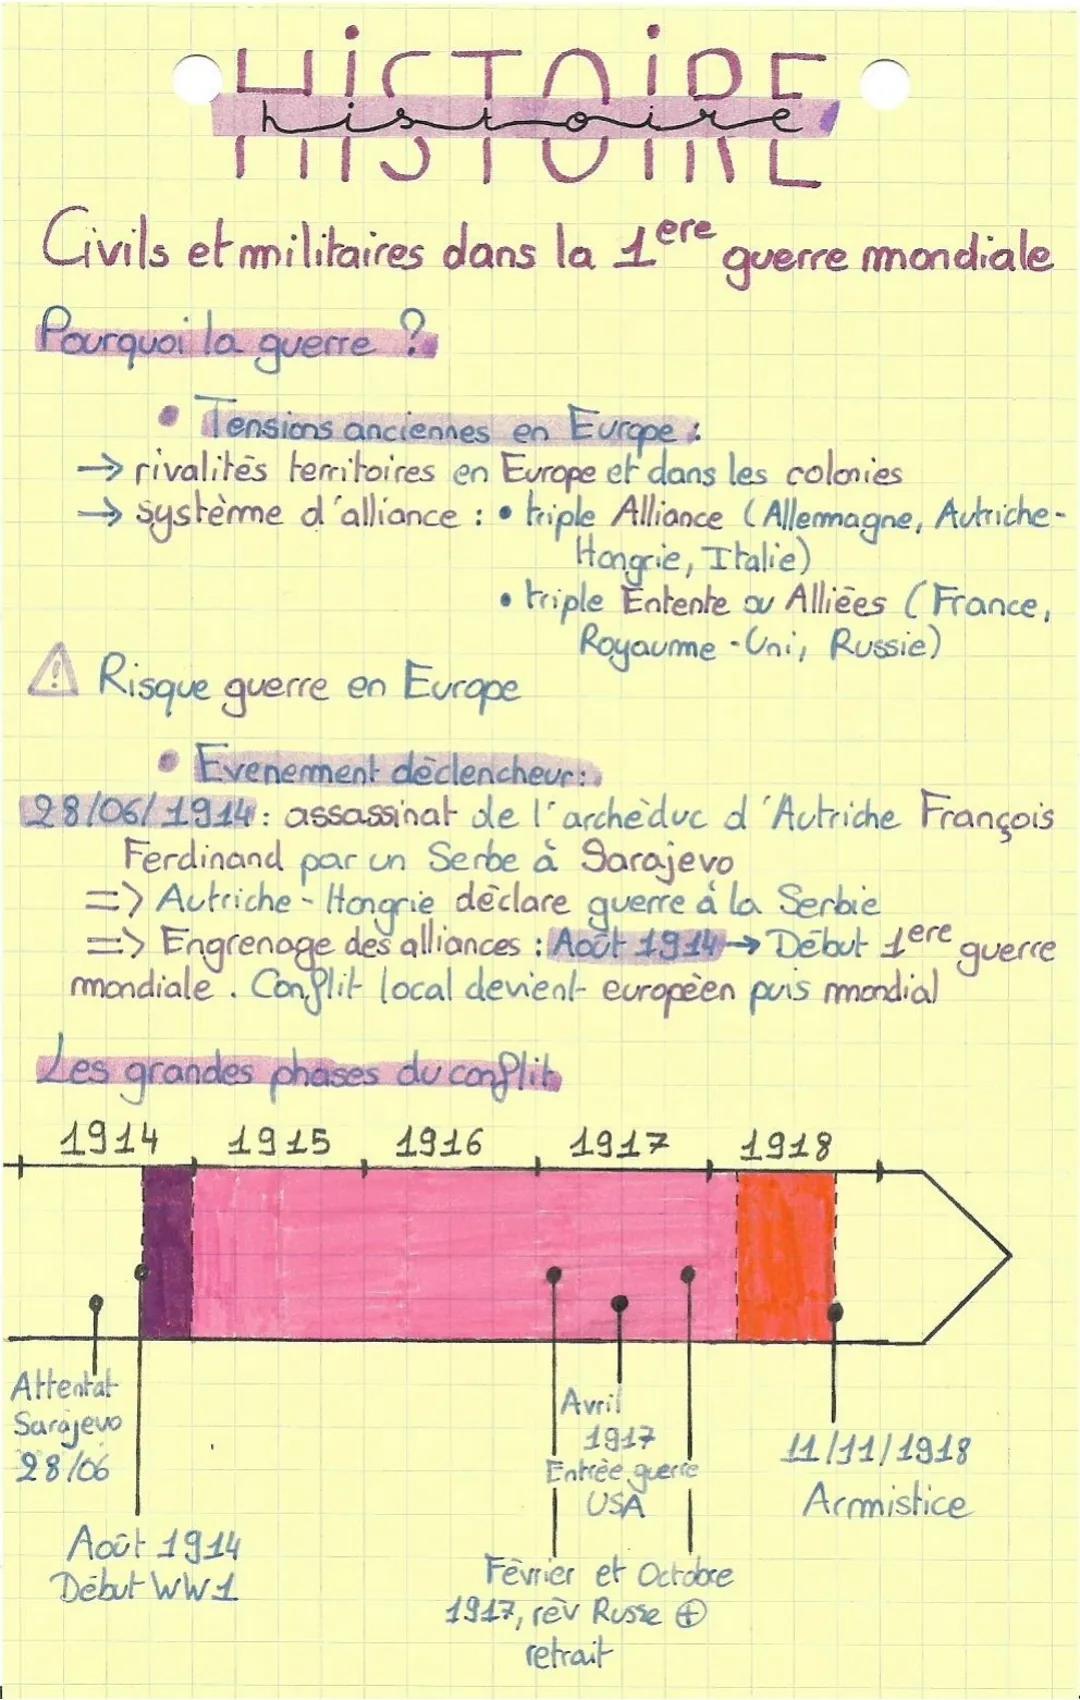 HISTOIRE
histoire
Civils et militaires dans la 1ere guerre mondiale
Pourquoi la guerre ?
• Tensions anciennes en Europe :
→ rivalités territoires en Europe et dans les colonies
→ système d'alliance : • triple Alliance (Allemagne, Autriche-
Hongrie, Italie)
• triple Entente ou Alliées (France,
Royaume-Uni, Russie)
⚠ Risque guerre en Europe
• Evenement déclencheur :
28/06/1914 : assassinat de l'archéduc d'Autriche François
Ferdinand par un Serbe à Sarajevo
=> Autriche-Hongrie déclare guerre à la Serbie
=> Engrenage des alliances : Août 1914 → Début 1ere guerre
mondiale. Conflit local devient européen puis mondial
Les grandes phases du conflit
1914 1915 1916 1917 1918
Attentat
Sarajevo
28/06
Août 1914
Début WW1
Avril
1917
Entrée guerre
USA
Février et Octobre
1917, rév Russe ⊕
retrait
11/11/1918
Armistice